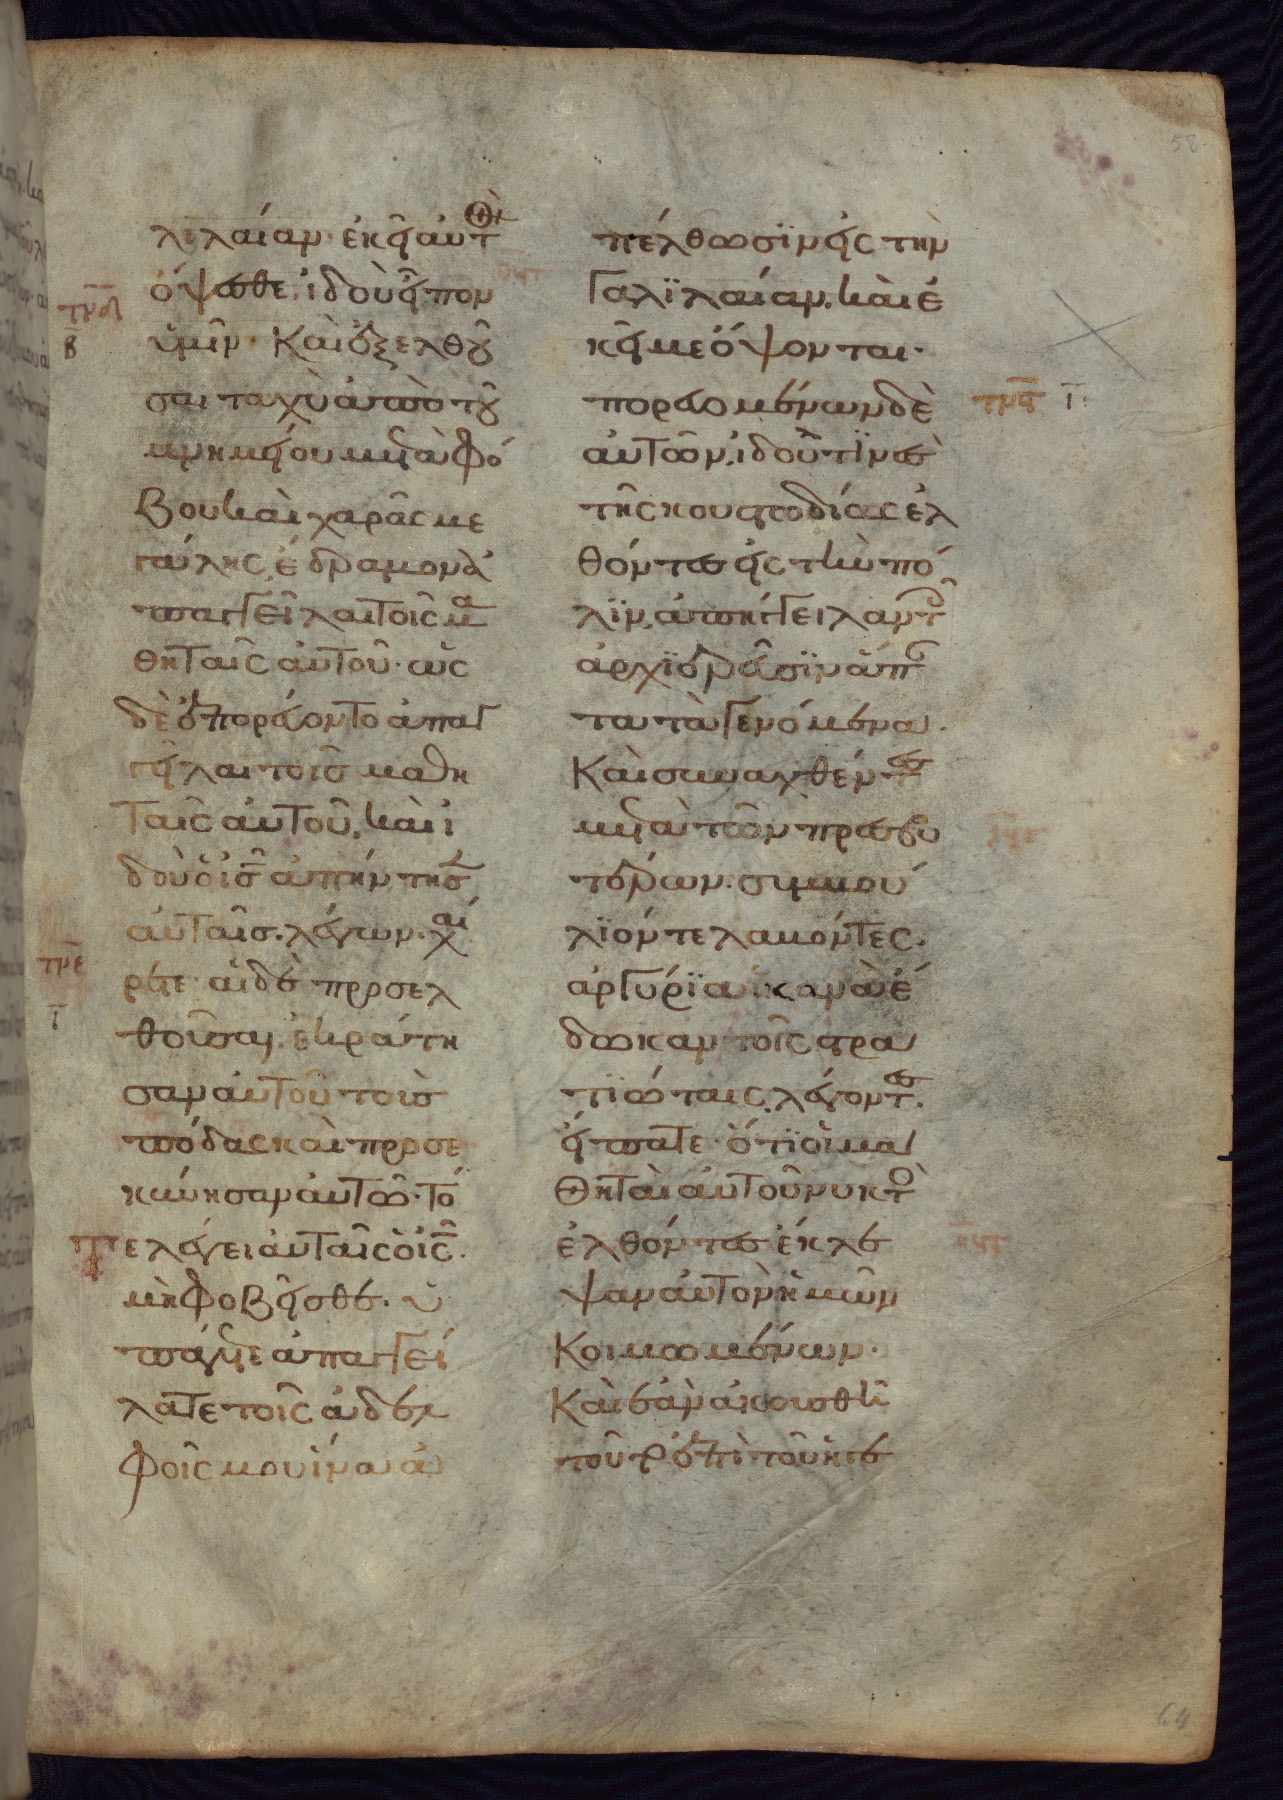 λιλαίαν· ἐκεῖ αὐτὸν
ὄψεσθε, ἰδοὺ εἶπον
τνδ
ὑμῖν· Καὶ ἐξελθοῦ
β
σαι ταχὺ ἀπὸ τοῦ
μνημείου μετὰ φό
βου καὶ χαρᾶς με
γάλης, ἔδραμον ἀ
παγγεῖλαι τοῖς μα
θηταῖς αὐτοῦ· ὡς
δὲ ἐπορεύοντο ἀπαγ
γεῖλαι τοῖς μαθη
ταῖς αὐτοῦ, καὶ ἰ
δοὺ ὁ ις ἀπήντησεν
αὐταῖς· λέγων· χαί
τνε
ρετε· αἱ δὲ προσελ
ι
θοῦσαι, ἐκράτη
σαν αὐτοῦ τοὺς
πόδας καὶ προσε
κύνησαν αὐτῶ· τό
τε λέγει αὐταῖς ὁ ις·
μὴ φοβεῖσθε· ὑ
πάγετε ἀπαγγεί
λατε τοῖς ἀδελ
φοῖς μου ἵνα ἀ
πέλθωσϊν εἰς τὴν
Γαλϊλαίαν, καὶ ἐ
κεῖ με ὄψονται·
πορευομένων δὲ
τνς ι
αὐτῶν, ἰδού τϊνες
τῆς κουστωδίας ἐλ
θόντες εἰς τὴν πό
λϊν, ἀπήγγειλαν τοῖς
ἀρχϊερεῦσϊν ἅπαν
τα τὰ γενόμενα·
Καὶ συναχθέντες
μετὰ τῶν πρεσβυ
τέρων· συμβού
λϊόν τε λαβόντες·
ἀργύρϊα ἱκανὰ ἔ
δωκαν τοῖς στρα
τϊώταις, λέγοντες·
εἴπατε ὅτϊ οἱ μα
θηταὶ αὐτοῦ νυκτὸς
ἐλθόντες ἔκλε
ψαν αὐτὸν ἡμῶν
Κοιμωμένων·
Καὶ ἐὰν ἀκουσθῆ
τοῦτο ἐπὶ τοῦ ἡγε
58
64